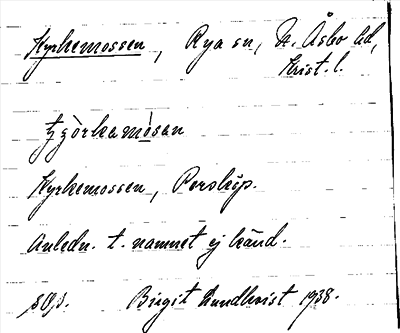 Kyrkemossen, Rya sn, N. Åsbo hd,
Krist. l.
tygòrkamósan
Kyrkemossen, Perstorp.
Anledn. t. namnet ej känd.
Birgit Lundkvist 1938.